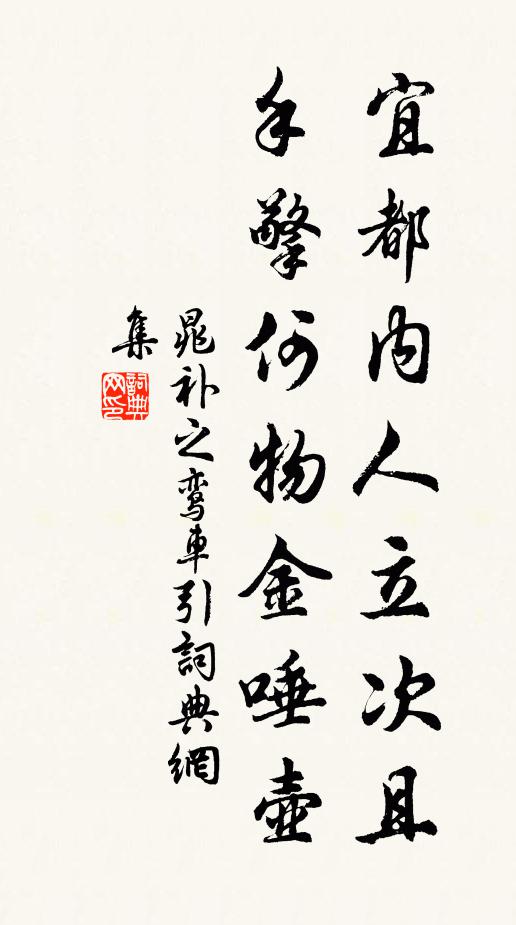 宜都内人立次且
手擎何物金唾壺
晁补之鸾車引詞典網
集
詞典网印